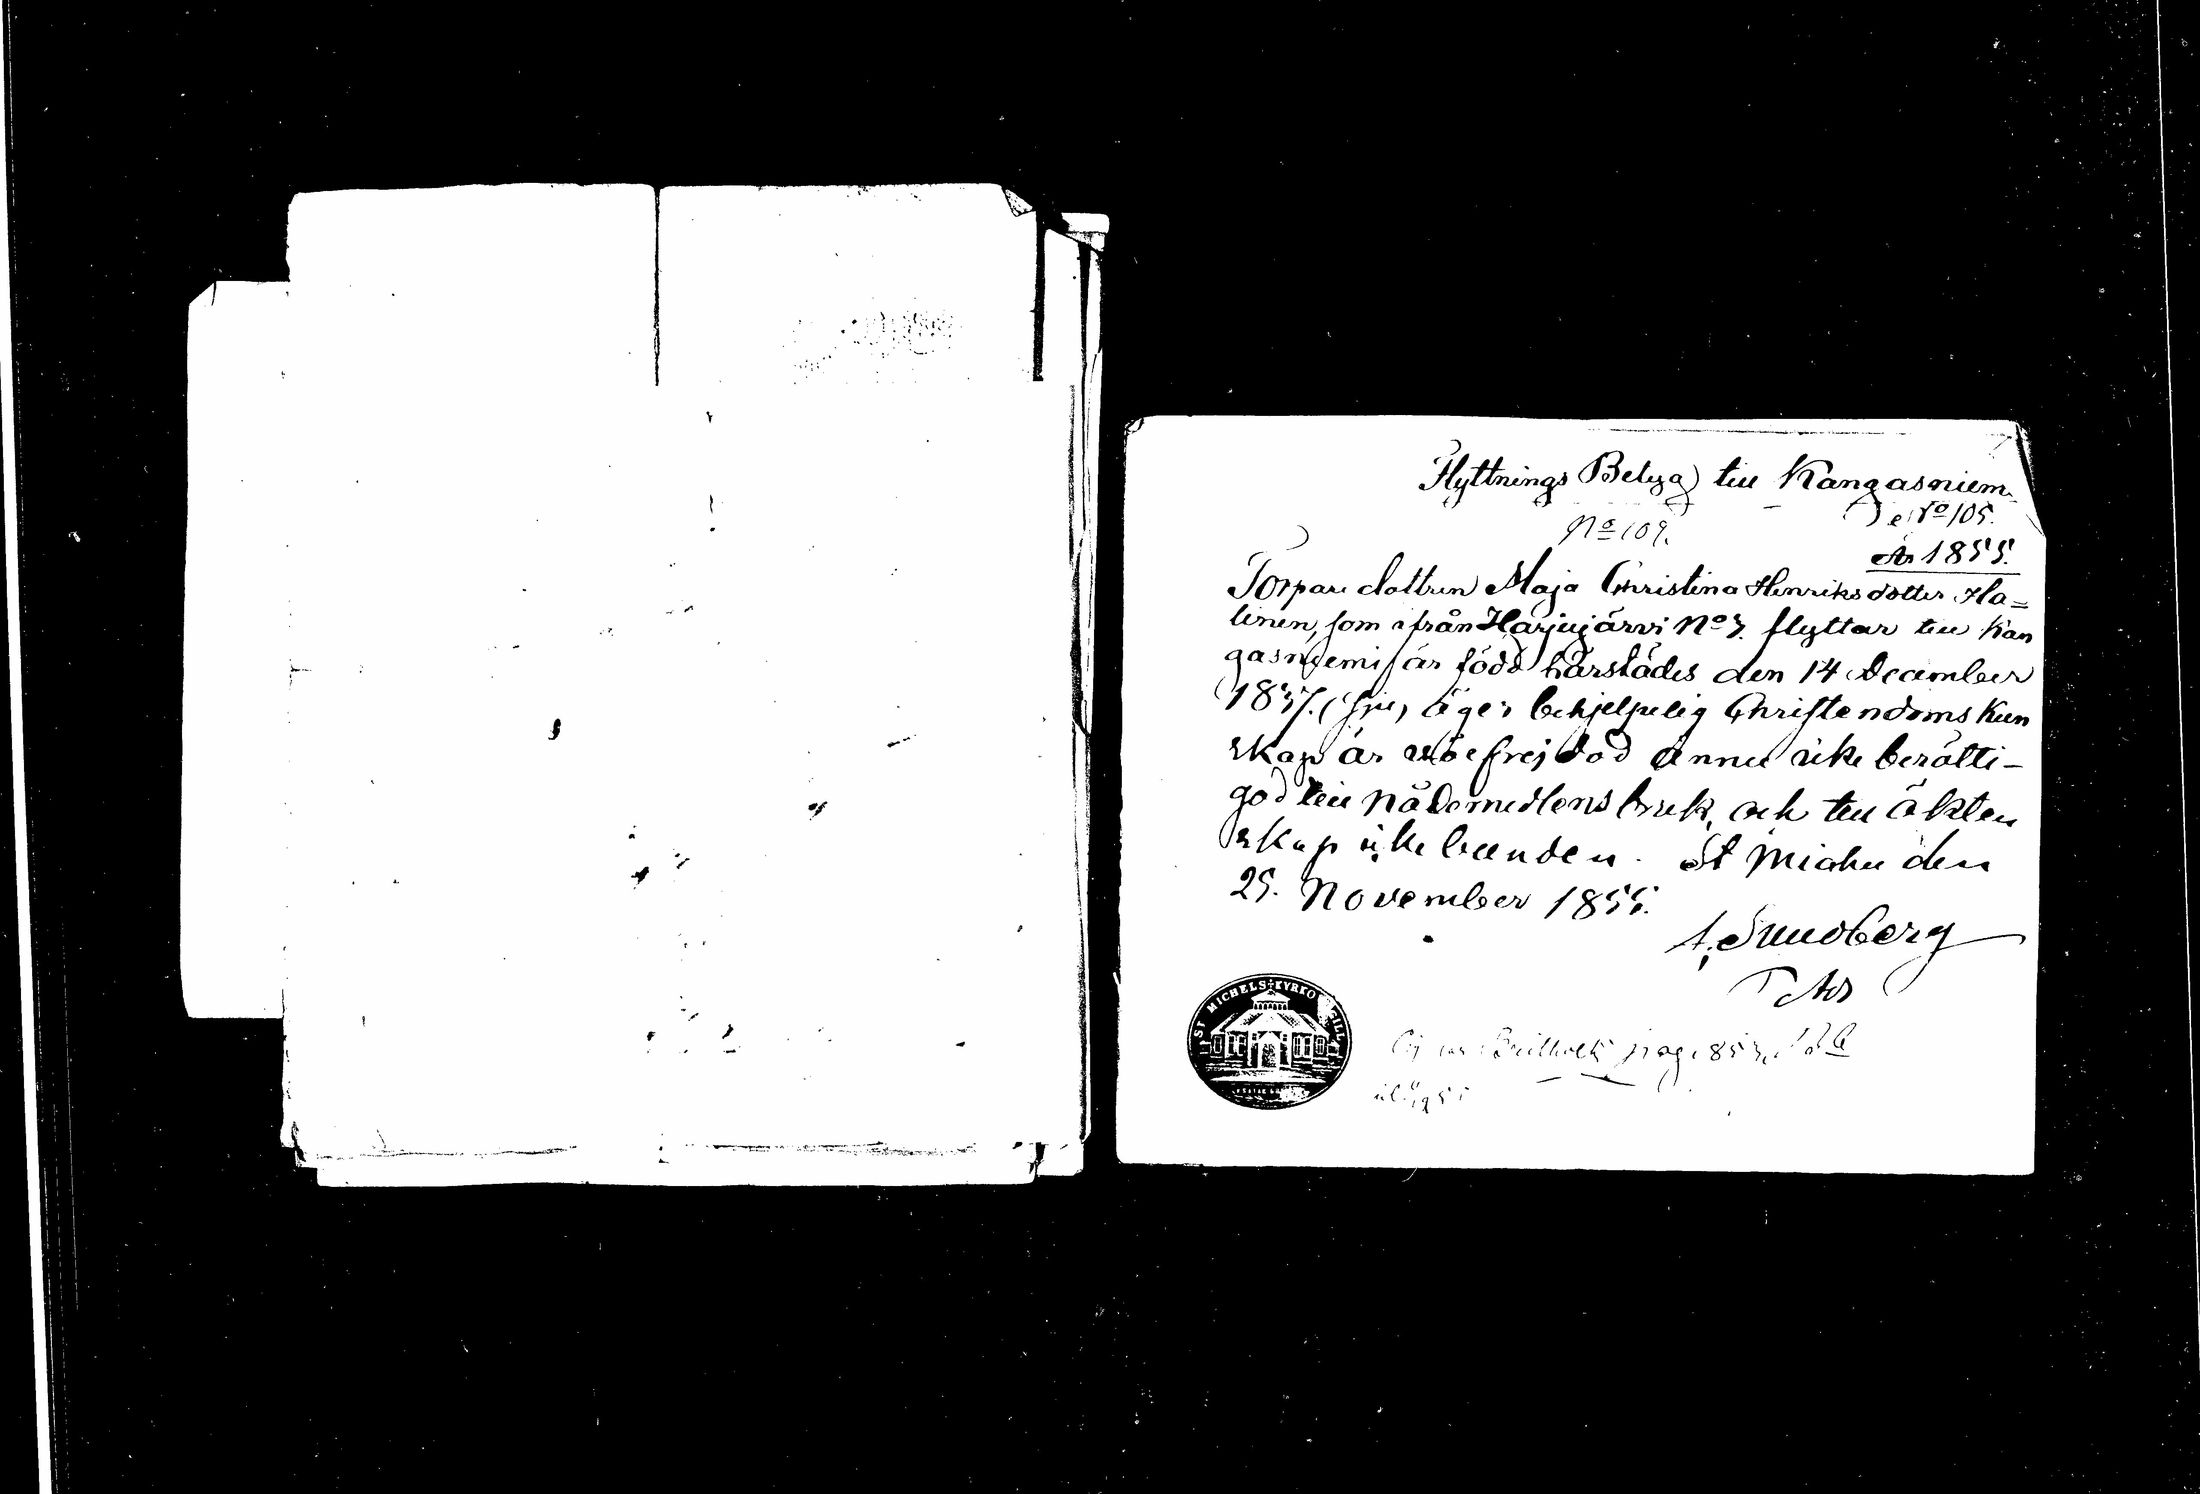 Flyttnings Betyg till Kangasniemi
No 109.
No 105.
År 1855.
Torpare dottren Maja Christina Henriksdotter Ha=
linen, som ifrån Harjujärvi No 3. flyttar till Kan
gasniemi, är född härstädes den 14 December
1837. äger behjelpelig Christendoms Kun
skap är väl frejdad ännu icke berätti-
gad till nådemedlens bruk, och till äkten
skap icke bunden. St Michel den
25. November 1855.
A. Sundberg
ST MICHELS KYRKO SIGILL